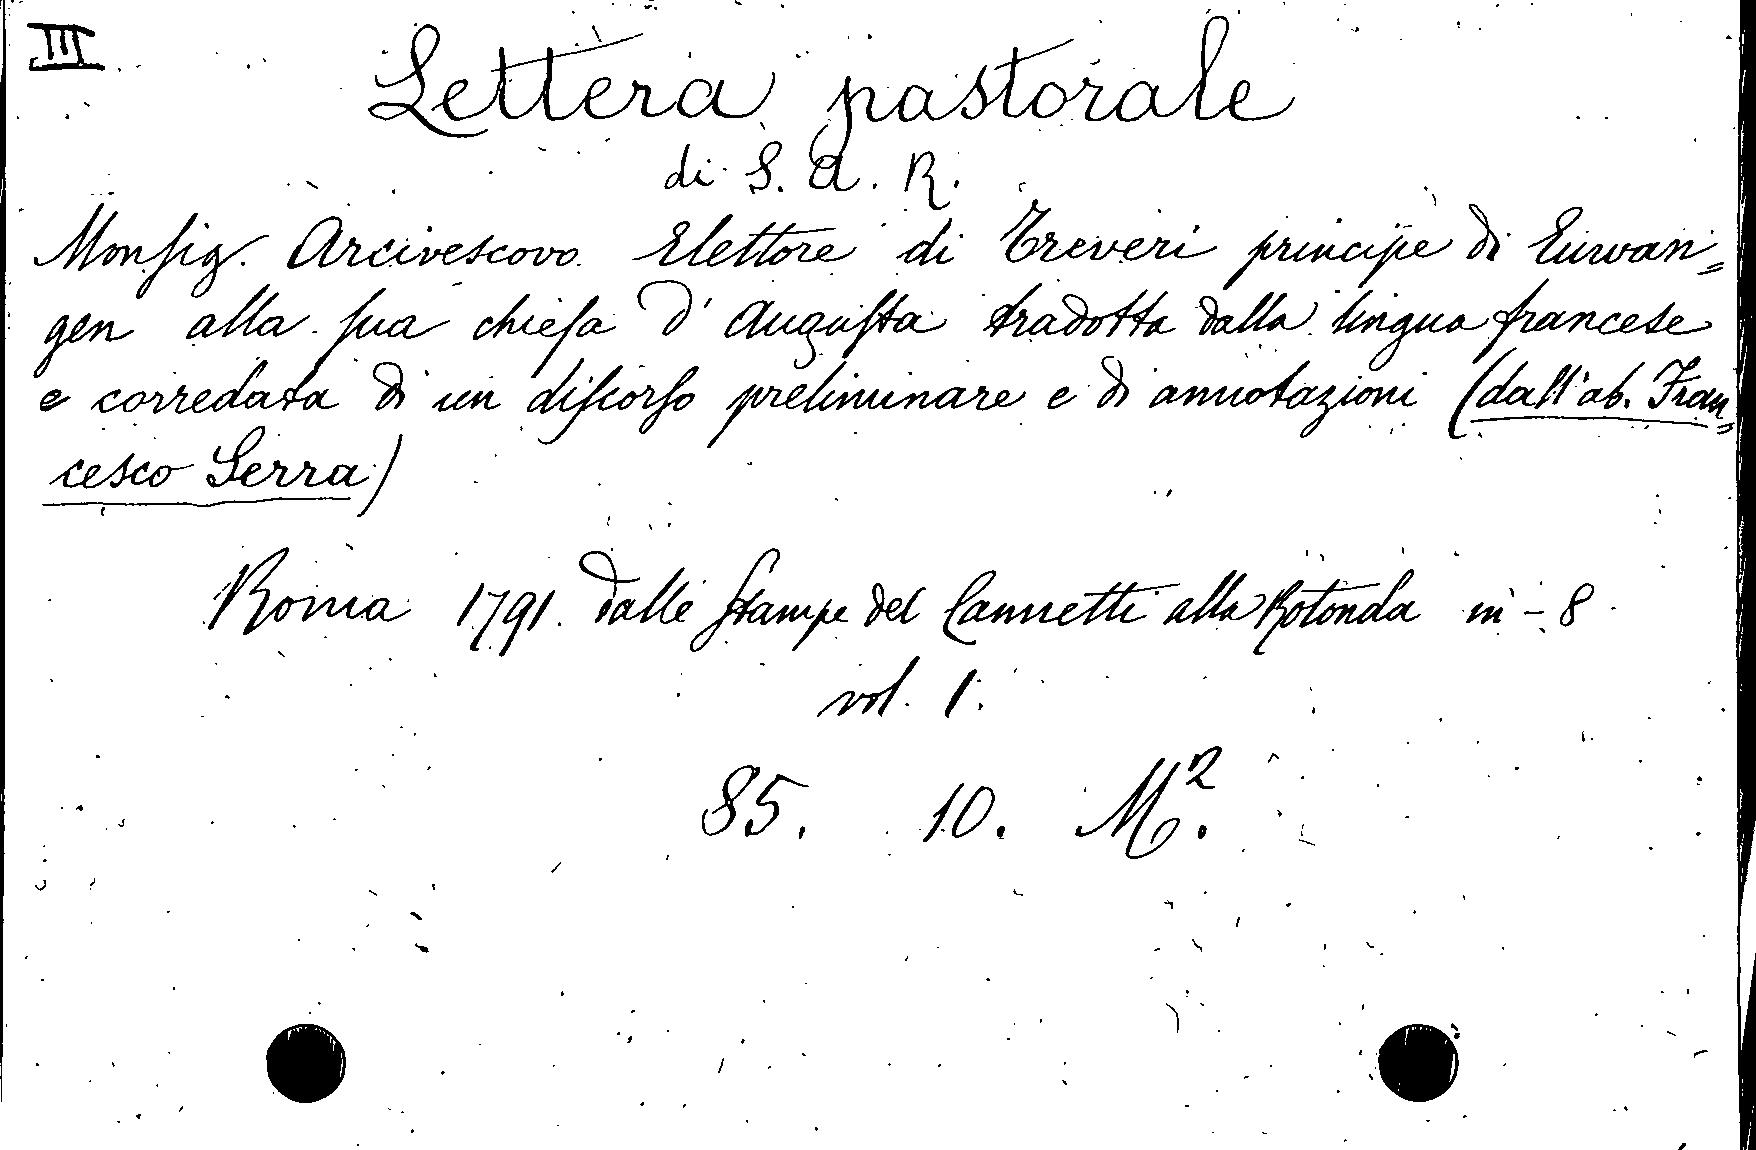 III
Lettera pastorale
di S. A. R.
Monsig. Arcivescovo Elettore di Treveri principe di Eurvan=
gen alla sua chiesa d'Augusta tradotta dalla lingua francese
e corredata di un discorso preliminare e di annotazioni (dall'ab. Fran=
cesco Serra)
Roma 1791. dalle stampe del Cannetti alla Rotonda in-8
vol. 1.
85. 10. M².